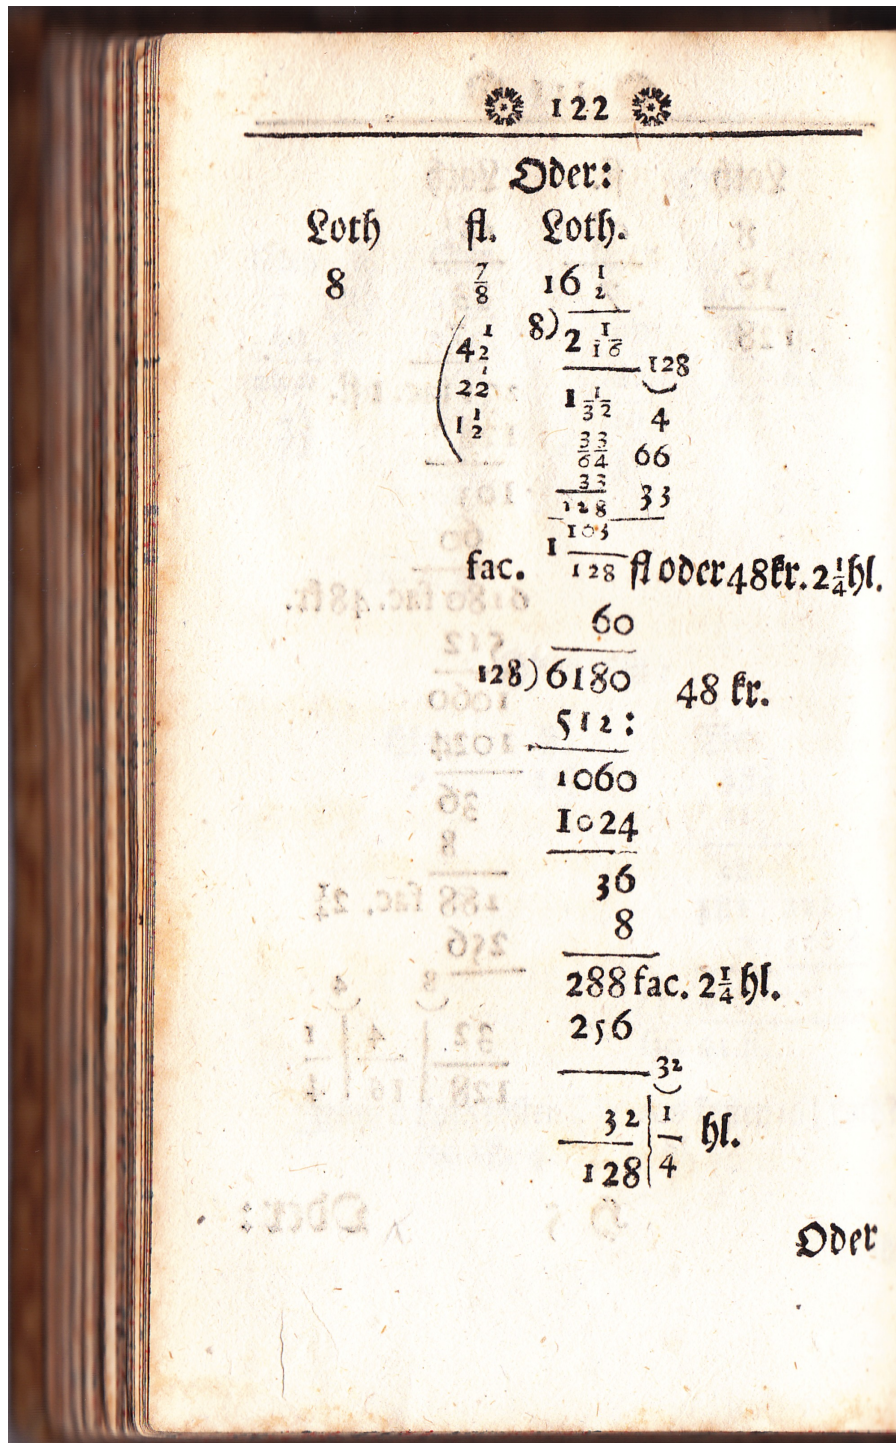 122
Oder:
Loth fl. Loth.
8 7/8 16 1/2
8) 2 1/16
4 1/2
128
22 1
1 1/32 4
1 1/2
33/64 66
33/128 33
fac. 1 103/128 fl oder 48 kr. 2 1/4 hl.
60
128) 6180 48 kr.
512:
1060
1024
36
8
288 fac. 2 1/4 hl.
256
32
32/128 | 1/4 hl.
Oder